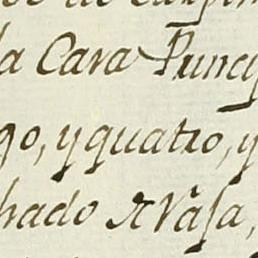 la Cara Princi
go, y quatro, y
hado de Vasa,